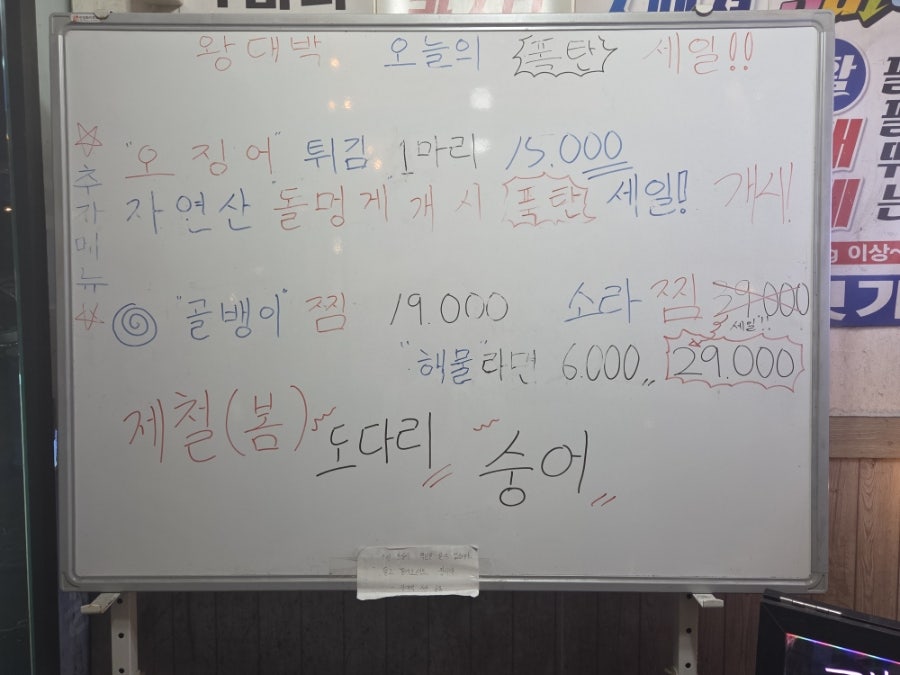 왕대박 오늘의 폭탄 세일!!
☆추가메뉴☆
"오징어" 튀김 1마리 15.000
자연산 돌멍게 개시 폭탄 세일! 개시!
"골뱅이" 찜 19.000 소라 찜 39.000
세일!!
"해물"라면 6.000 29.000
제철(봄) 도다리 숭어
g 이상~